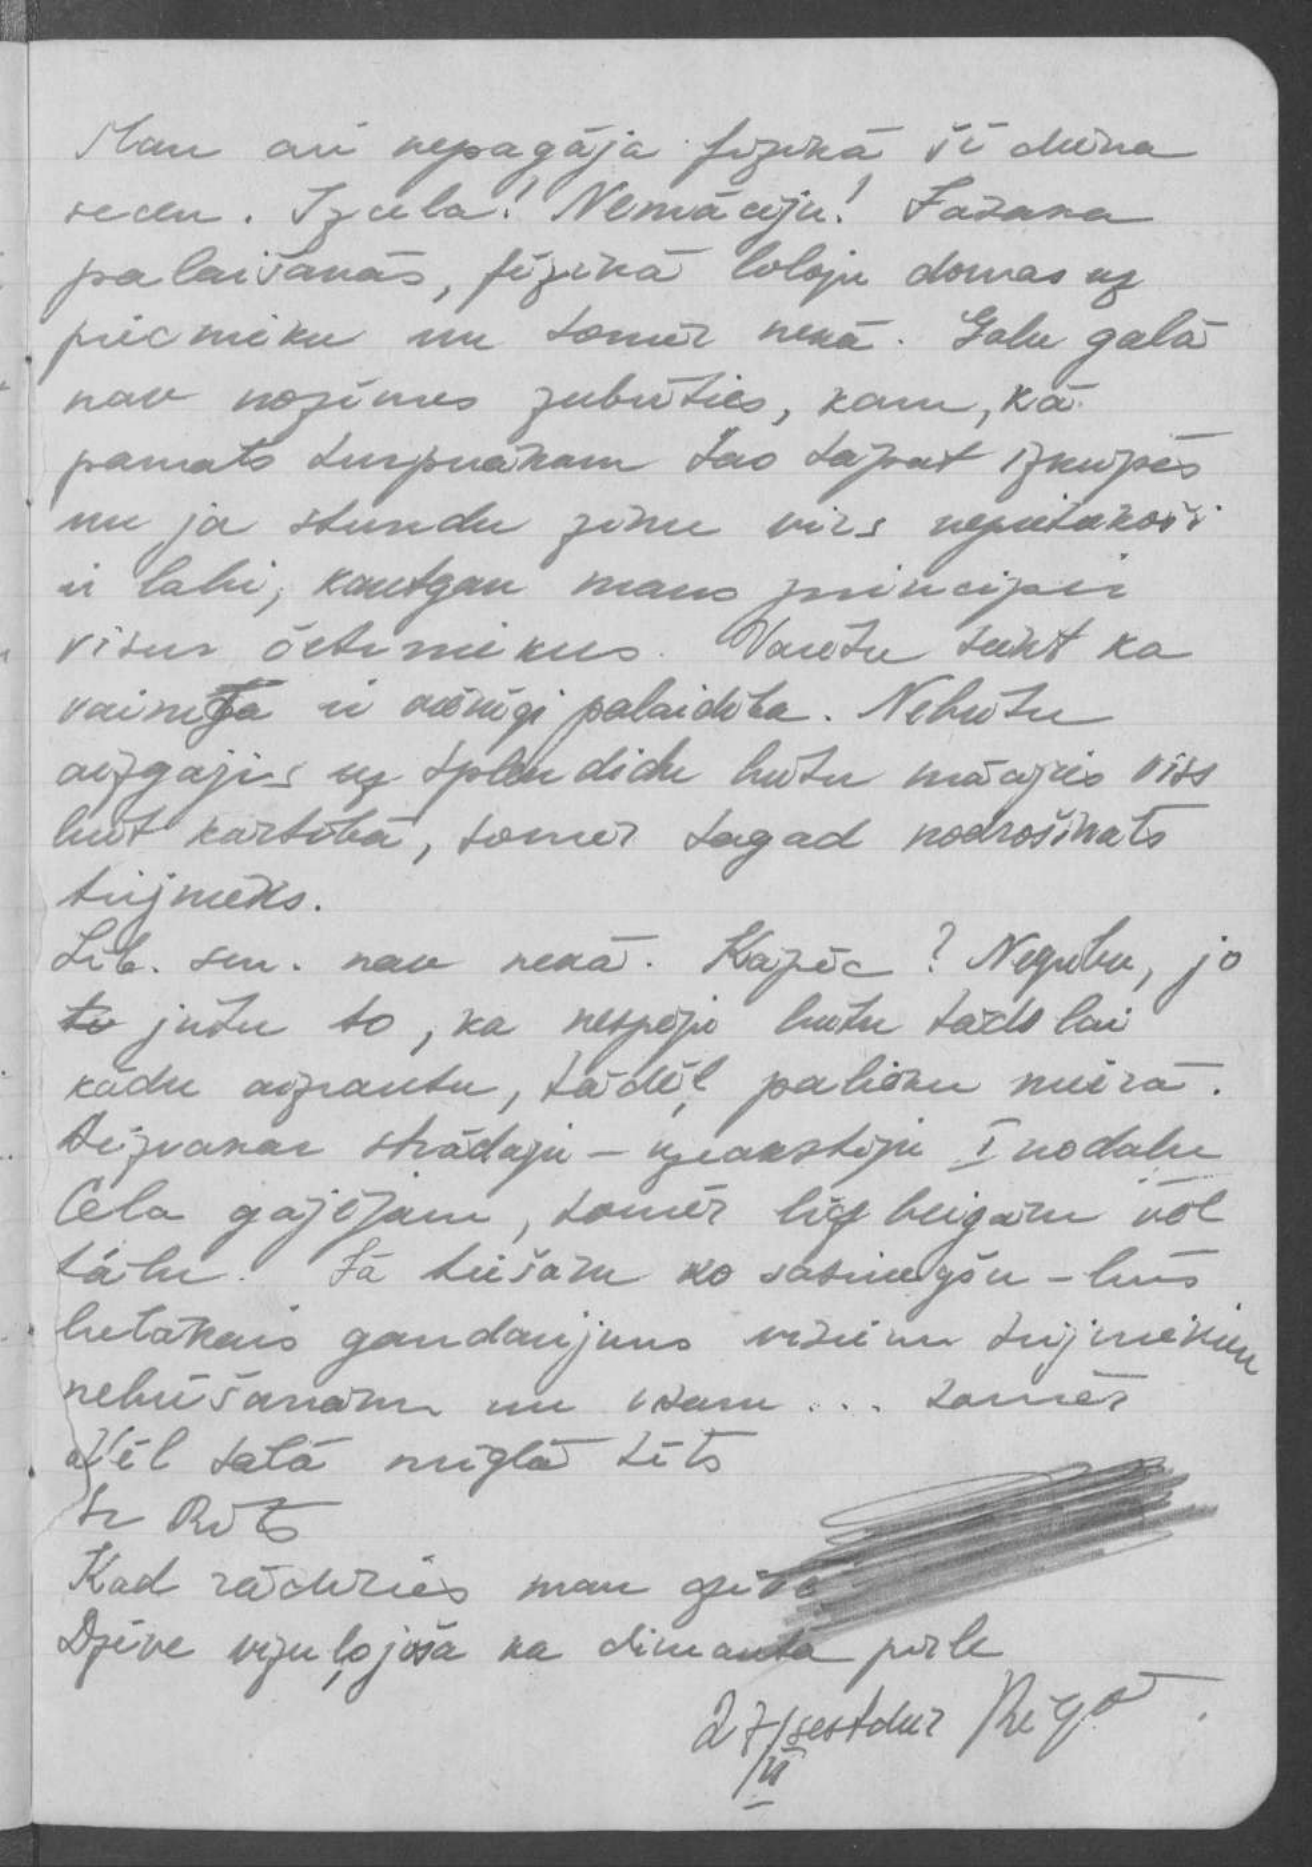 Man arī nepagāja fizikā šī diena
secen. Izcēla! Nemāciju!
palaišanās, fizikā loloju domas uz
piecnieku un tomēr nekā. Galu galā
nav nozīmes zubrīties, kam, kā
pamats turpmākam tas tāpat izkūpēs
un ja stundu zinu virs nepietiekoši
ir labi, kautgan mans principis
visur četrnieks. Varētu teikt ka
vainīga ir vienīgi palaidība. Nebūtu
aizgājis uz Splendidu butu mācijies viss
būt kārtībā, tomēr tagad nodrošināts
trijnieks.
Lit. sem. nav nekā. Kāpēc? Negribu, jo
jūtu to, ka nespēju butu tāds lai
kādu aizrautu, tādēļ palieku mierā.
Aizvakar strādāju – uzrakstiju I nodaļu
Ceļa gājējam, tomēr līdz beigām vēl
tālu. Jā tiešām ko sasniegšu – būs
lielākais gandarijums visiem trijniekiem
nebūšanām un visam ... tomēr
Vēl salā miglā tīts
Ir Rīts
Kad rādīsies man
Dzīve vizuļojoša ka dimanta pērle
27/VI sestdien Rīgā.